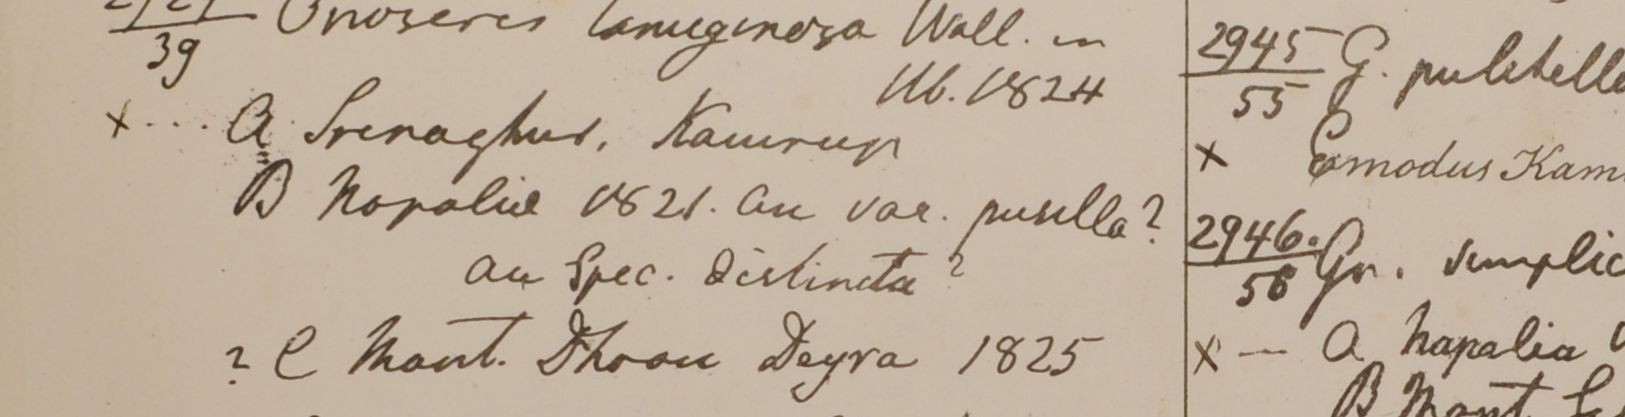 39 Onoseris lanuginosa Wall. in
Hb. 1824
x... A Srenaghur, Kamrup
B Napalia 1821. an var. pusilla?
an Spec. distincta?
? C Mont. Dhoon Deyra 1825
2945
55 G. pulchella
x Emodus Kam
2946.
56 Gn. simplic
x — A Napalia
B Mont.